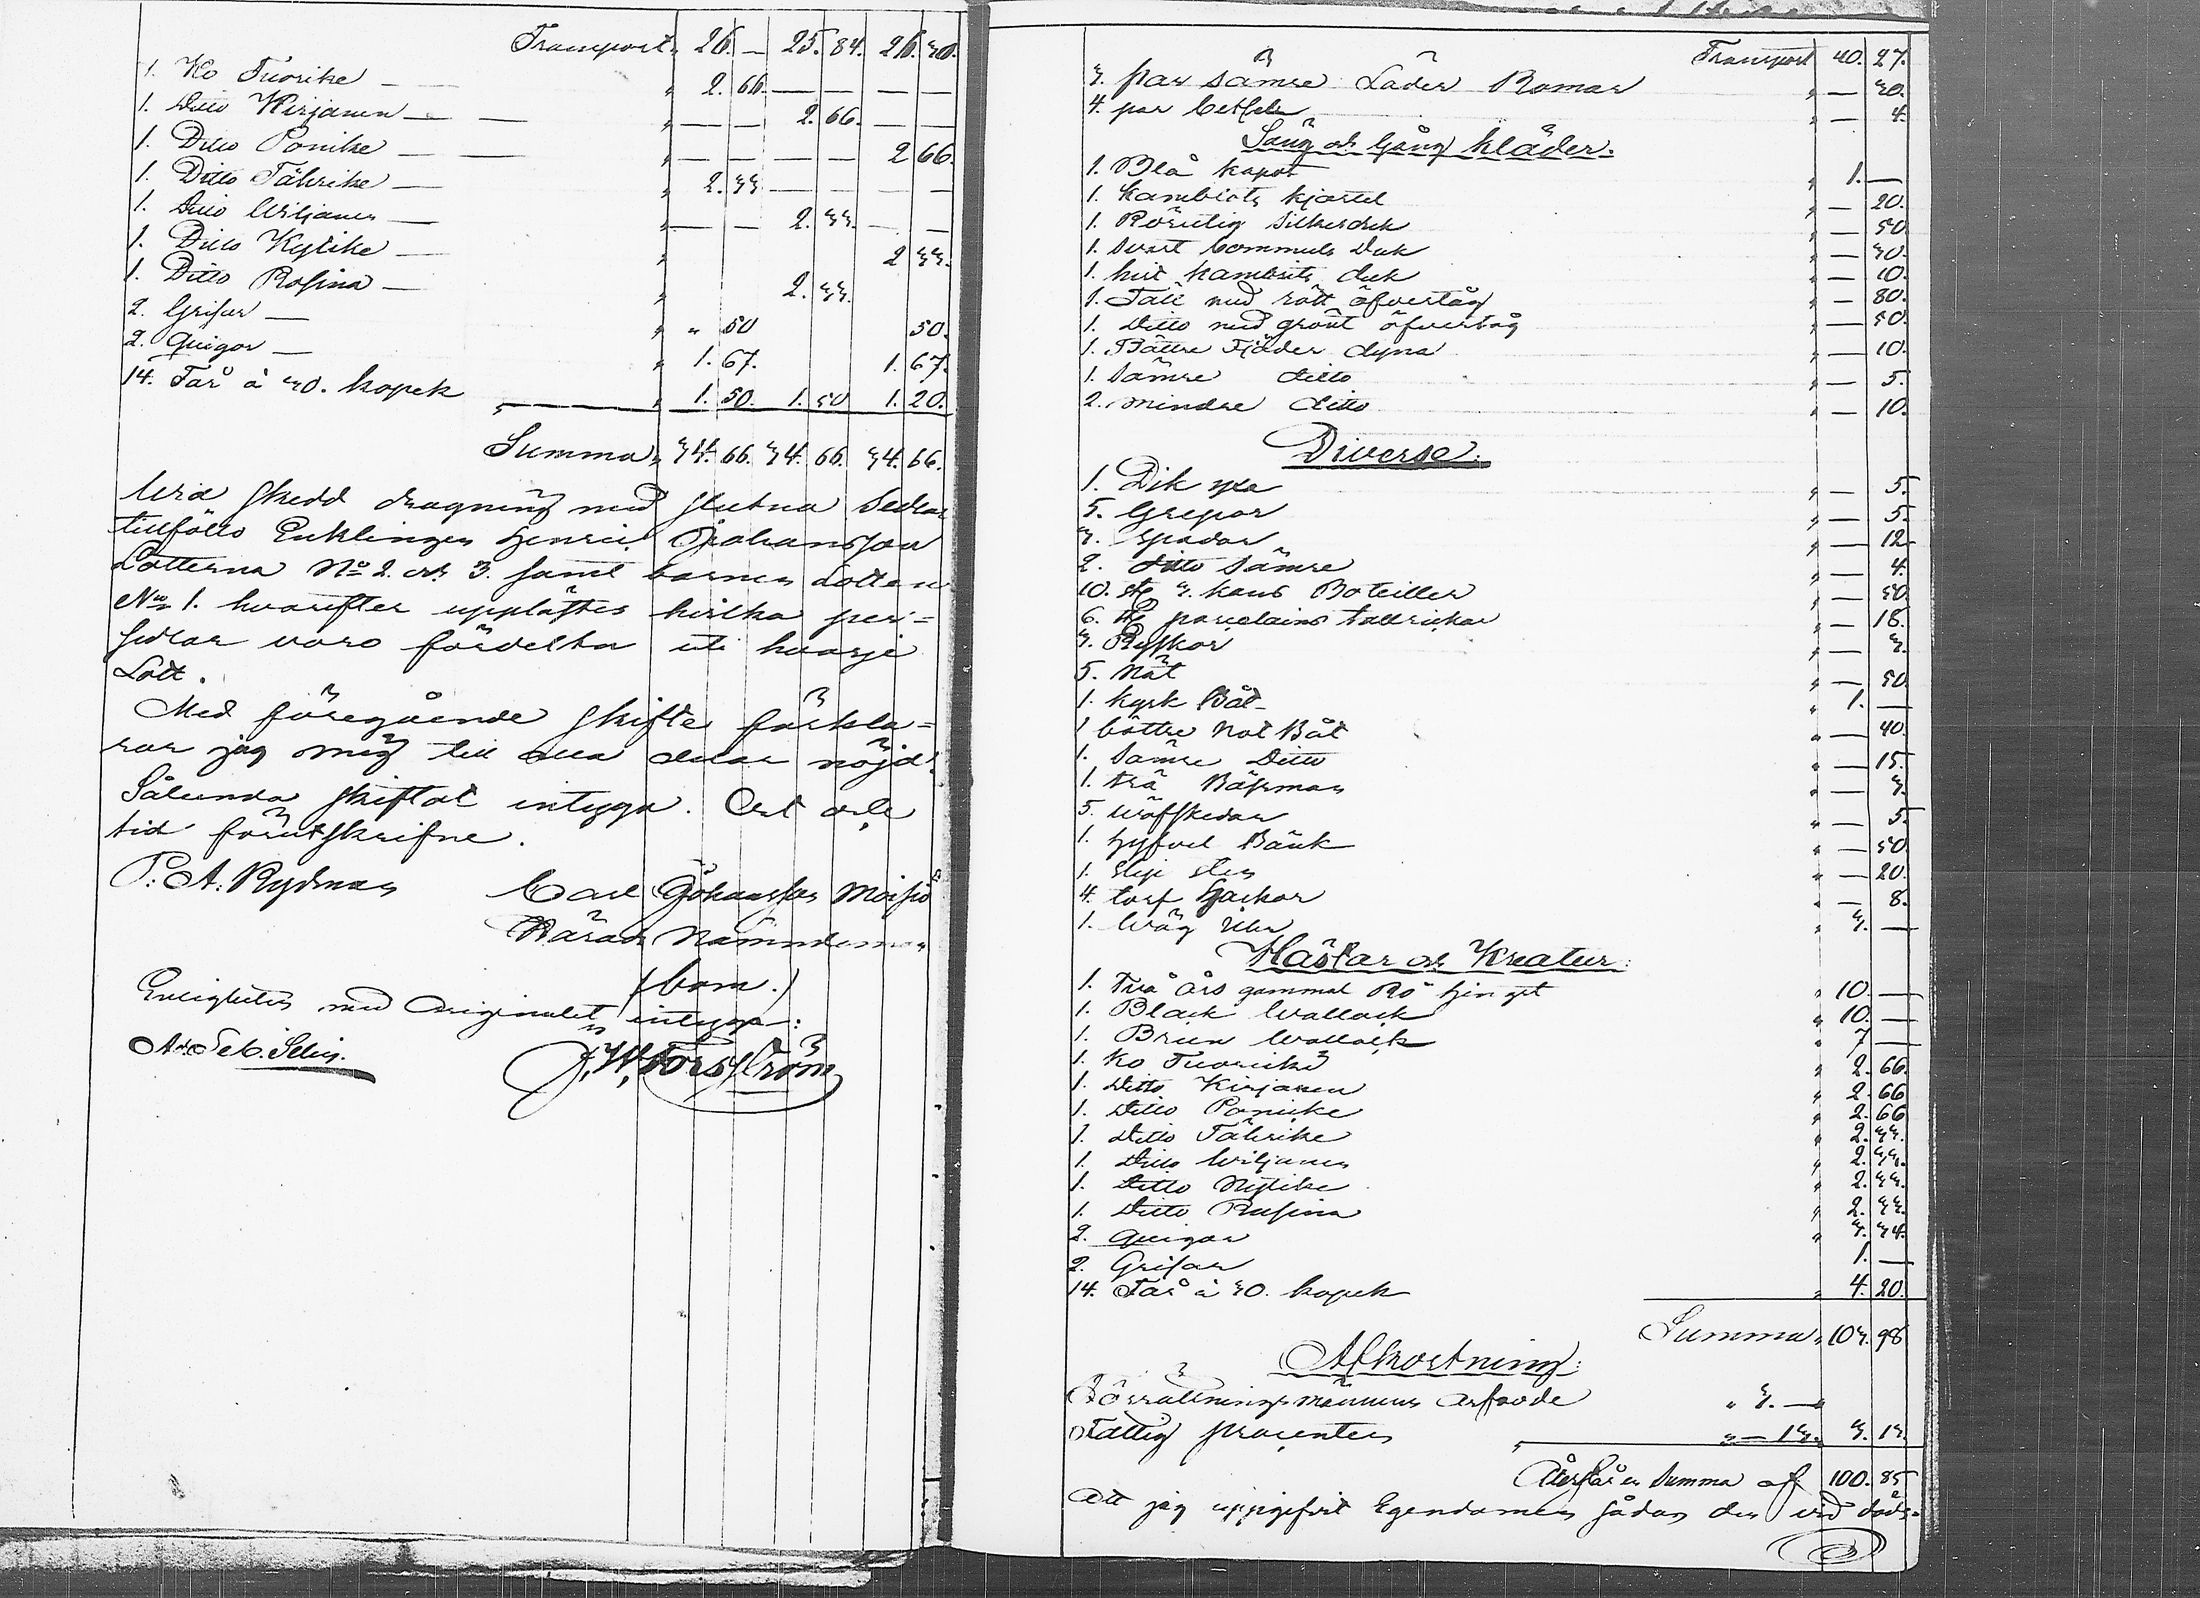 Transport „ 26. — 25. 84. 26. 30.
1. Ko Tuorike — „ 2. 66. — — — —
1. Ditto Kirjanen — „ — — 2. 66. — —
1. Ditto Ponike — „ — — — — 2 66.
1. Ditto Tährike — „ 2. 33 — — — —
1. Ditto Wiljanen — „ — — 2. 33. — —
1. Ditto Kytike — „ 2 33.
1. Ditto Rosina — „ 2. 33.
2. Grisar — „ „ 50 50.
2. Quigor — „ 1. 67. 1. 67.
14. Får à 30. kopek „ 1. 50. 1. 50 1. 20.
Summa „ 34. 66. 34. 66. 34. 66.
Wid skedd dragning med slutna sedlar
tillföllo Enklingen Henric Johansson
Lotterna No 2. och 3. samt barnen Lotten
No 1. hvarefter upplästes hvilka per=
sedlar voro fördelta uti hvarje
Lott.
Med föregående skifte förkla=
rar jag mig till alla delar nöjd.
Sålunda skiftat intyga. Ort och
tid förutskrifne.
P. A. Rydman Carl Göhansson Moisio
Härads Nämndeman
(bom.)
Enligheten med Originalet intyga:
J. W. Forsström
Transport 40. 27.
3. par sämre Läder Romar „ — 30.
4. par betsel „ — 4.
Säng och Gång kläder.
1. Blå kapot „ 1. —
1. Kamblots kjortel „ — 20.
1. Rörutig Silkesduk „ — 50
1. Svart bommuls Duk „ — 30.
1. hvit kambrits duk „ — 10.
1. Fäll med rött öfvertåg „ — 80.
1. Ditto med grönt öfvertåg „ — 50.
1. Bättre Fjäder dyna „ — 10.
1. Sämre ditto „ — 5.
2. mindre ditto „ — 10.
Diverse.
1. Dik yxa „ — 5.
5. Grepar „ — 5.
3. Spadar „ — 12.
2. ditto Sämre „ — 4.
10. st 3. kans Boteiller „ — 50.
6. st porcelains tallrickar „ — 18.
3. Rysskor „ — 3.
5. Nät „ — 50
1. kyrk Båt „ 1. —
1 bättre Not Båt „ — 40.
1. Sämre Ditto „ — 15.
1. trä Båsman „ — 3.
5. Wäfskedar „ — 5.
1. Hyfvel Bänk „ — 50.
1. Slip sten „ — 20.
4. torf Hackor „ — 8.
1. Wäg Uhr „ 3. —
Hästar och Kreatur.
1. Två års gammal Rö hingst „ 10. —
1. Black Wallack „ 10. —
1. Brun Wallack „ 7 —
1. Ko Tuorike „ 2. 66.
1. Ditto Kirjanen „ 2. 66
1. Ditto Ponicke „ 2. 66
1. Ditto Tährike „ 2. 33.
1. Ditto Wiljanen „ 2. 33.
1. Ditto Kytike „ 2. 33.
1. Ditto Rusina „ 2. 33.
2. Quigor „ 3. 34.
2. Grisar 1. —
14. Får à 30. kopek „ 4. 20.
Summa „ 103. 98
Afkortning:
Förrättningsmännens Arfvode „ 3. —
Fattig procenten „ — 13. 3. 13.
Återstår en Summa af 100. 85
Att jag uppgifvit Egendomen sådan den vid döds=